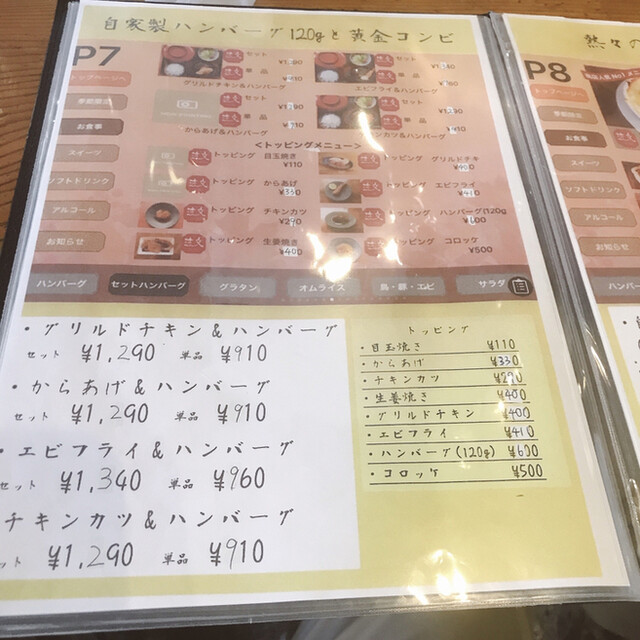 自家製ハンバーグ120gと黄金コンビ
P7
トップページへ
季節限定
お食事
スイーツ
ソフトドリンク
アルコール
お知らせ
セット ¥1,290
単品 ¥910
グリルドチキン&ハンバーグ
セット
単品 ¥960
エビフライ&ハンバーグ
セット
単品 ¥910
からあげ&ハンバーグ
セット
単品 ¥910
カツ&ハンバーグ
<トッピングメニュー>
トッピング 目玉焼き ¥110
トッピング グリルドチキ ¥400
トッピング からあげ ¥330
トッピング エビフライ ¥410
トッピング チキンカツ ¥290
トッピング ハンバーグ(120g ¥600
トッピング 生姜焼き ¥400
トッピング コロッケ ¥500
ハンバーグ セットハンバーグ グラタン オムライス 鳥・豚・エビ サラダ
・グリルドチキン&ハンバーグ
セット ¥1,290 単品 ¥910
・からあげ&ハンバーグ
セット ¥1,290 単品 ¥910
・エビフライ&ハンバーグ
セット ¥1,340 単品 ¥960
チキンカツ&ハンバーグ
ット ¥1,290 単品 ¥910
トッピング
・目玉焼き ¥110
・からあげ ¥330
・チキンカツ ¥290
・生姜焼き ¥400
・グリルドチキン ¥400
・エビフライ ¥410
・ハンバーグ(120g) ¥600
・コロッケ ¥500
熱々の
P8
トップページへ
季節限定
お食事
スイーツ
ソフトドリンク
アルコール
お知らせ
ハンバー